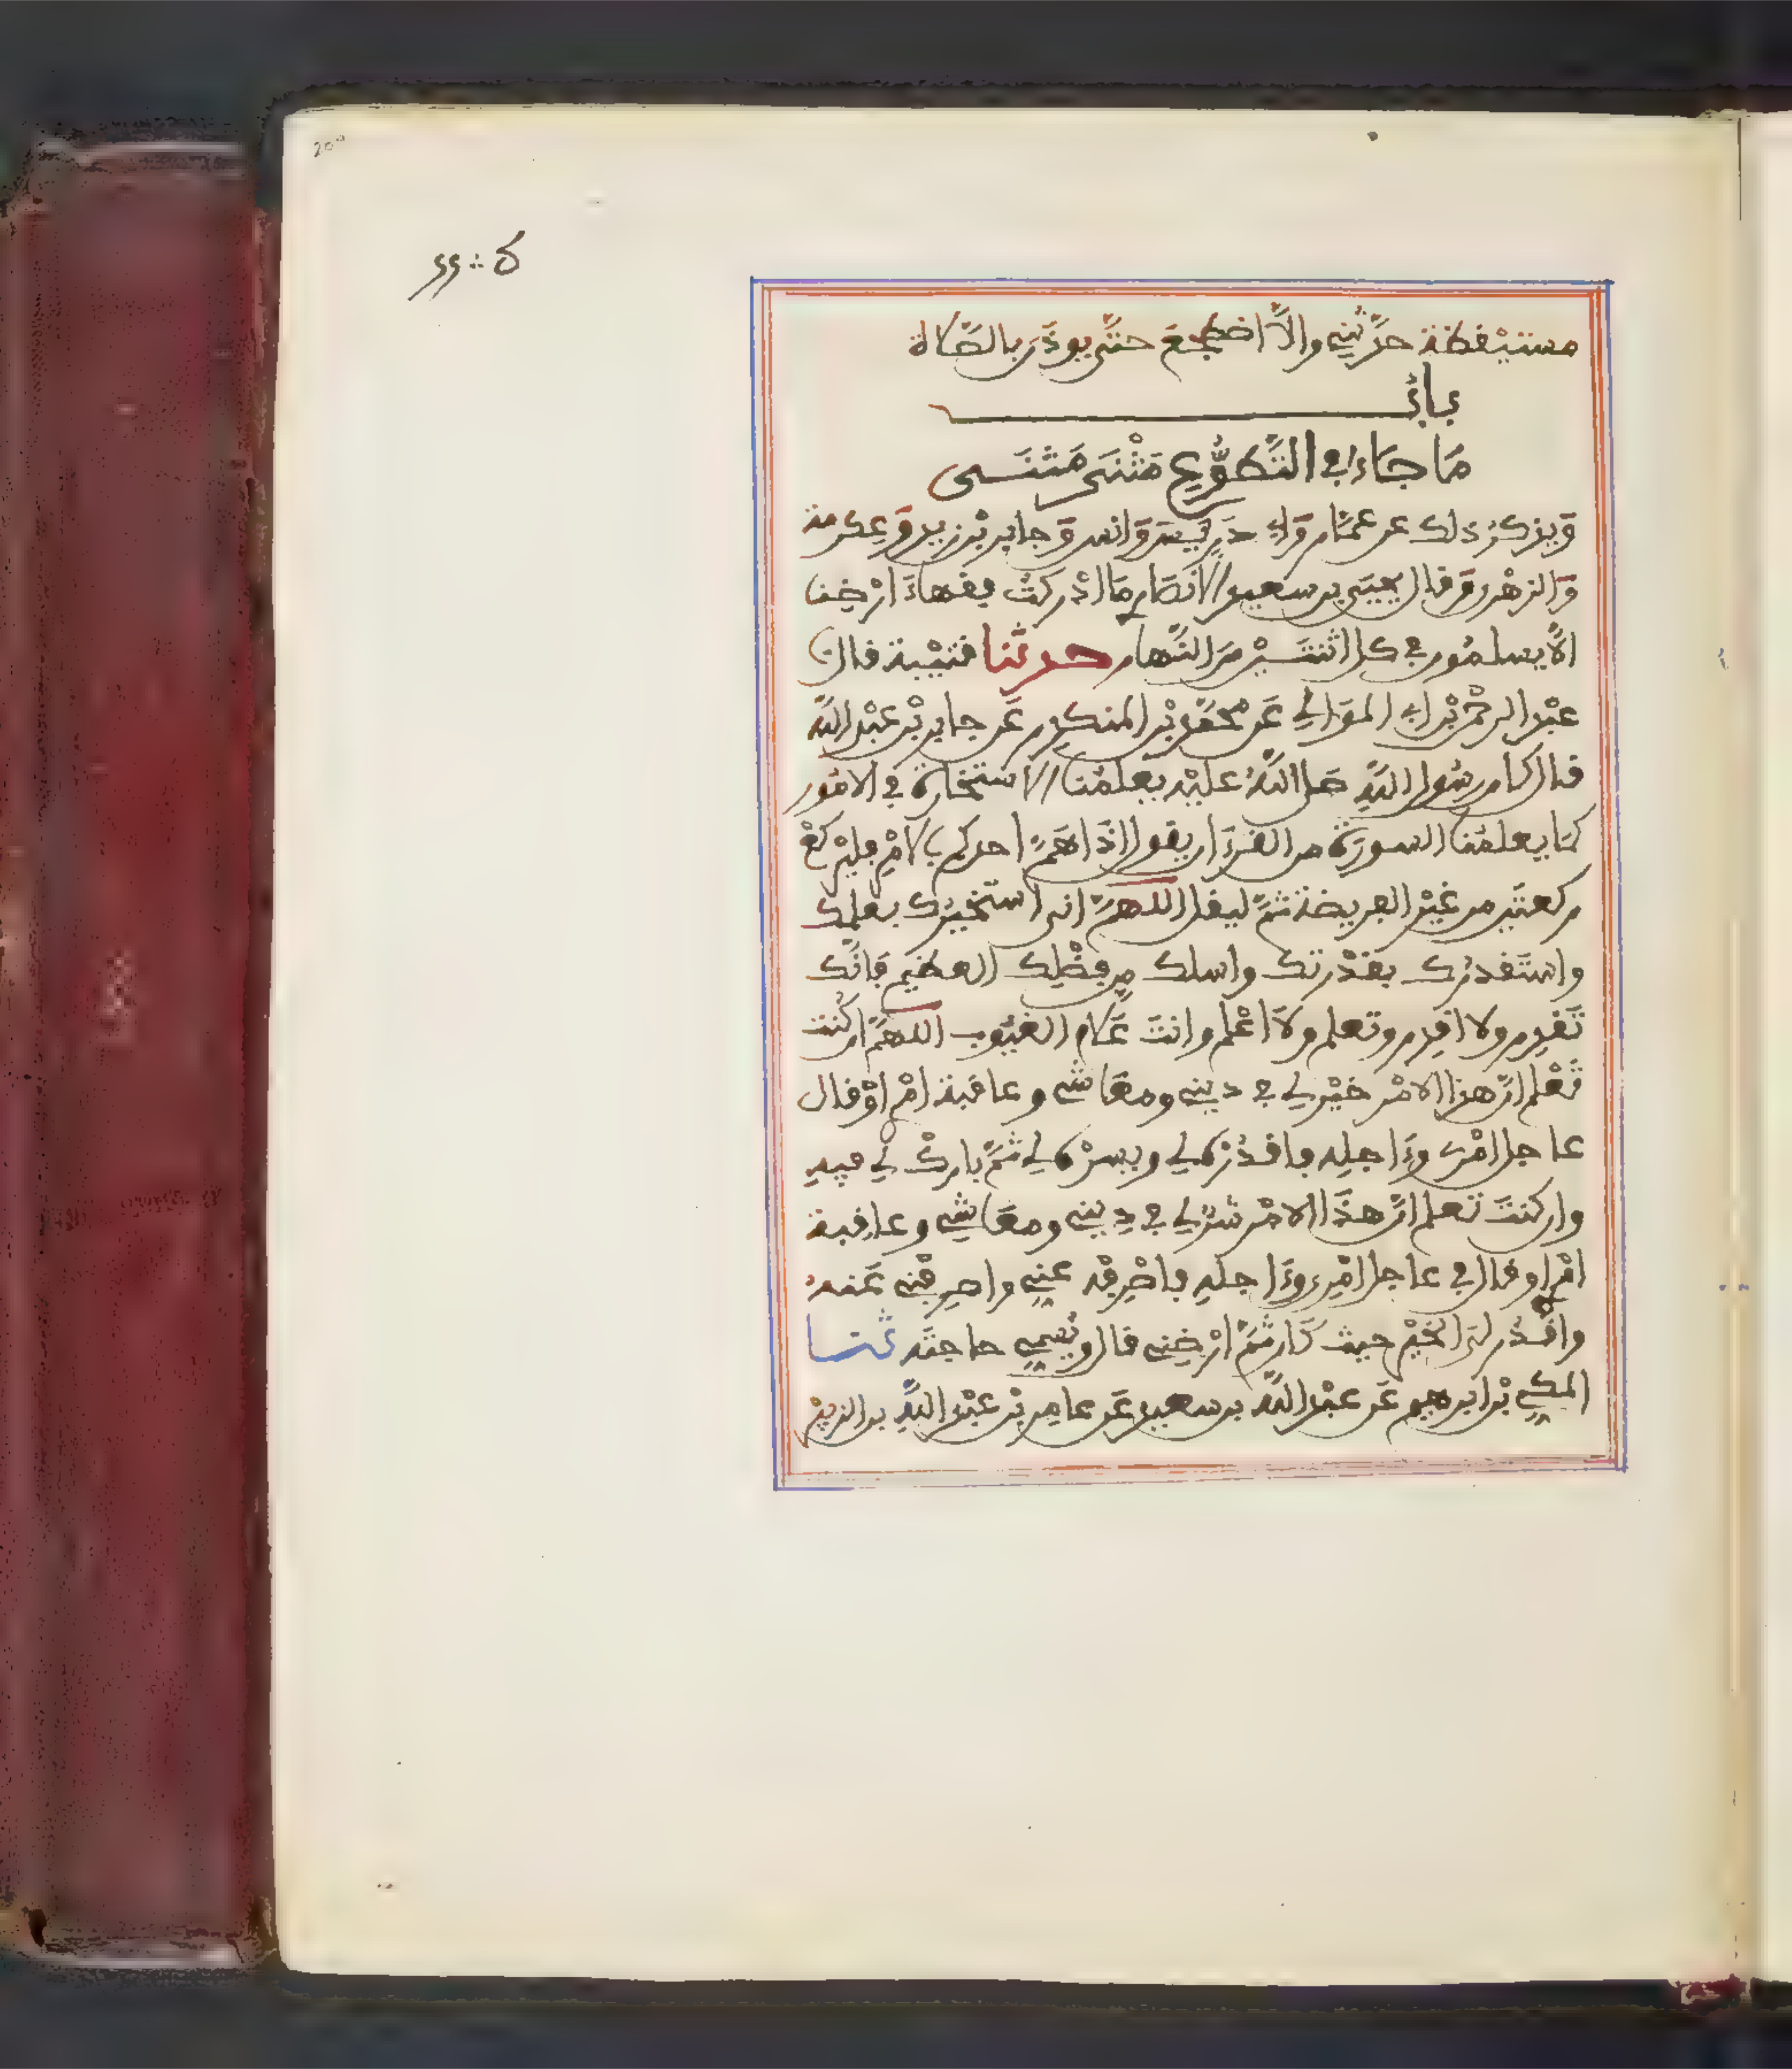 مستيقظة حدّثنى والاّ اضطجع حتّى يوذن بالصّلاة
باب
ما جاء في التّطوّع مثنى مثنى
ويذكر ذلك عن عمّار وابي ذر وانس وجابر بن زيد وعكرمة
والزهرى وقال يحيى بن سعيد الانصارى ما ادركت فقهاء ارضنا
الاّ يسلمون في كل اثنتين من النّهار حدثنا قتيبة قال
عبد الرحمن بن ابي الموالي عن محمّد بن المنكدر عن جابر بن عبد اللّه
قال كان رسول اللّه صلى اللّه عليه يعلمنا الاستخارة في الامور
كما يعلمنا السورة من القرءان يقول اذا همّ احدكم بالامر فليركع
ركعتين من غير الفريضة ثمّ ليقل اللهمّ اني استخيرك بعلمك
واستقدرك بقدرتك واسلك من فضلك العظيم فانّك
تقدر ولا اقدر وتعلم ولا اعلم وانت علام الغيوب اللهمّ ان كنت
تعلم انّ هذا الامر خير لي في ديني ومعاشي وعاقبة امر او قال
عاجل امرى وءاجله فاقدره لي ويسره لي ثمّ بارك لي فيه
وان كنت تعلم انّ هذا الامر شر لي في ديني ومعاشي وعاقبة
امر او قال في عاجل امرى وءاجله فاصرفه عني واصرفني عنه
واقدر لي الخير حيث كان ثمّ ارضني قال ويسمي حاجته ثنا
المكي بن ابرهيم عن عبد اللّه بن سعيد عن عامر بن عبد اللّه بن الزبير